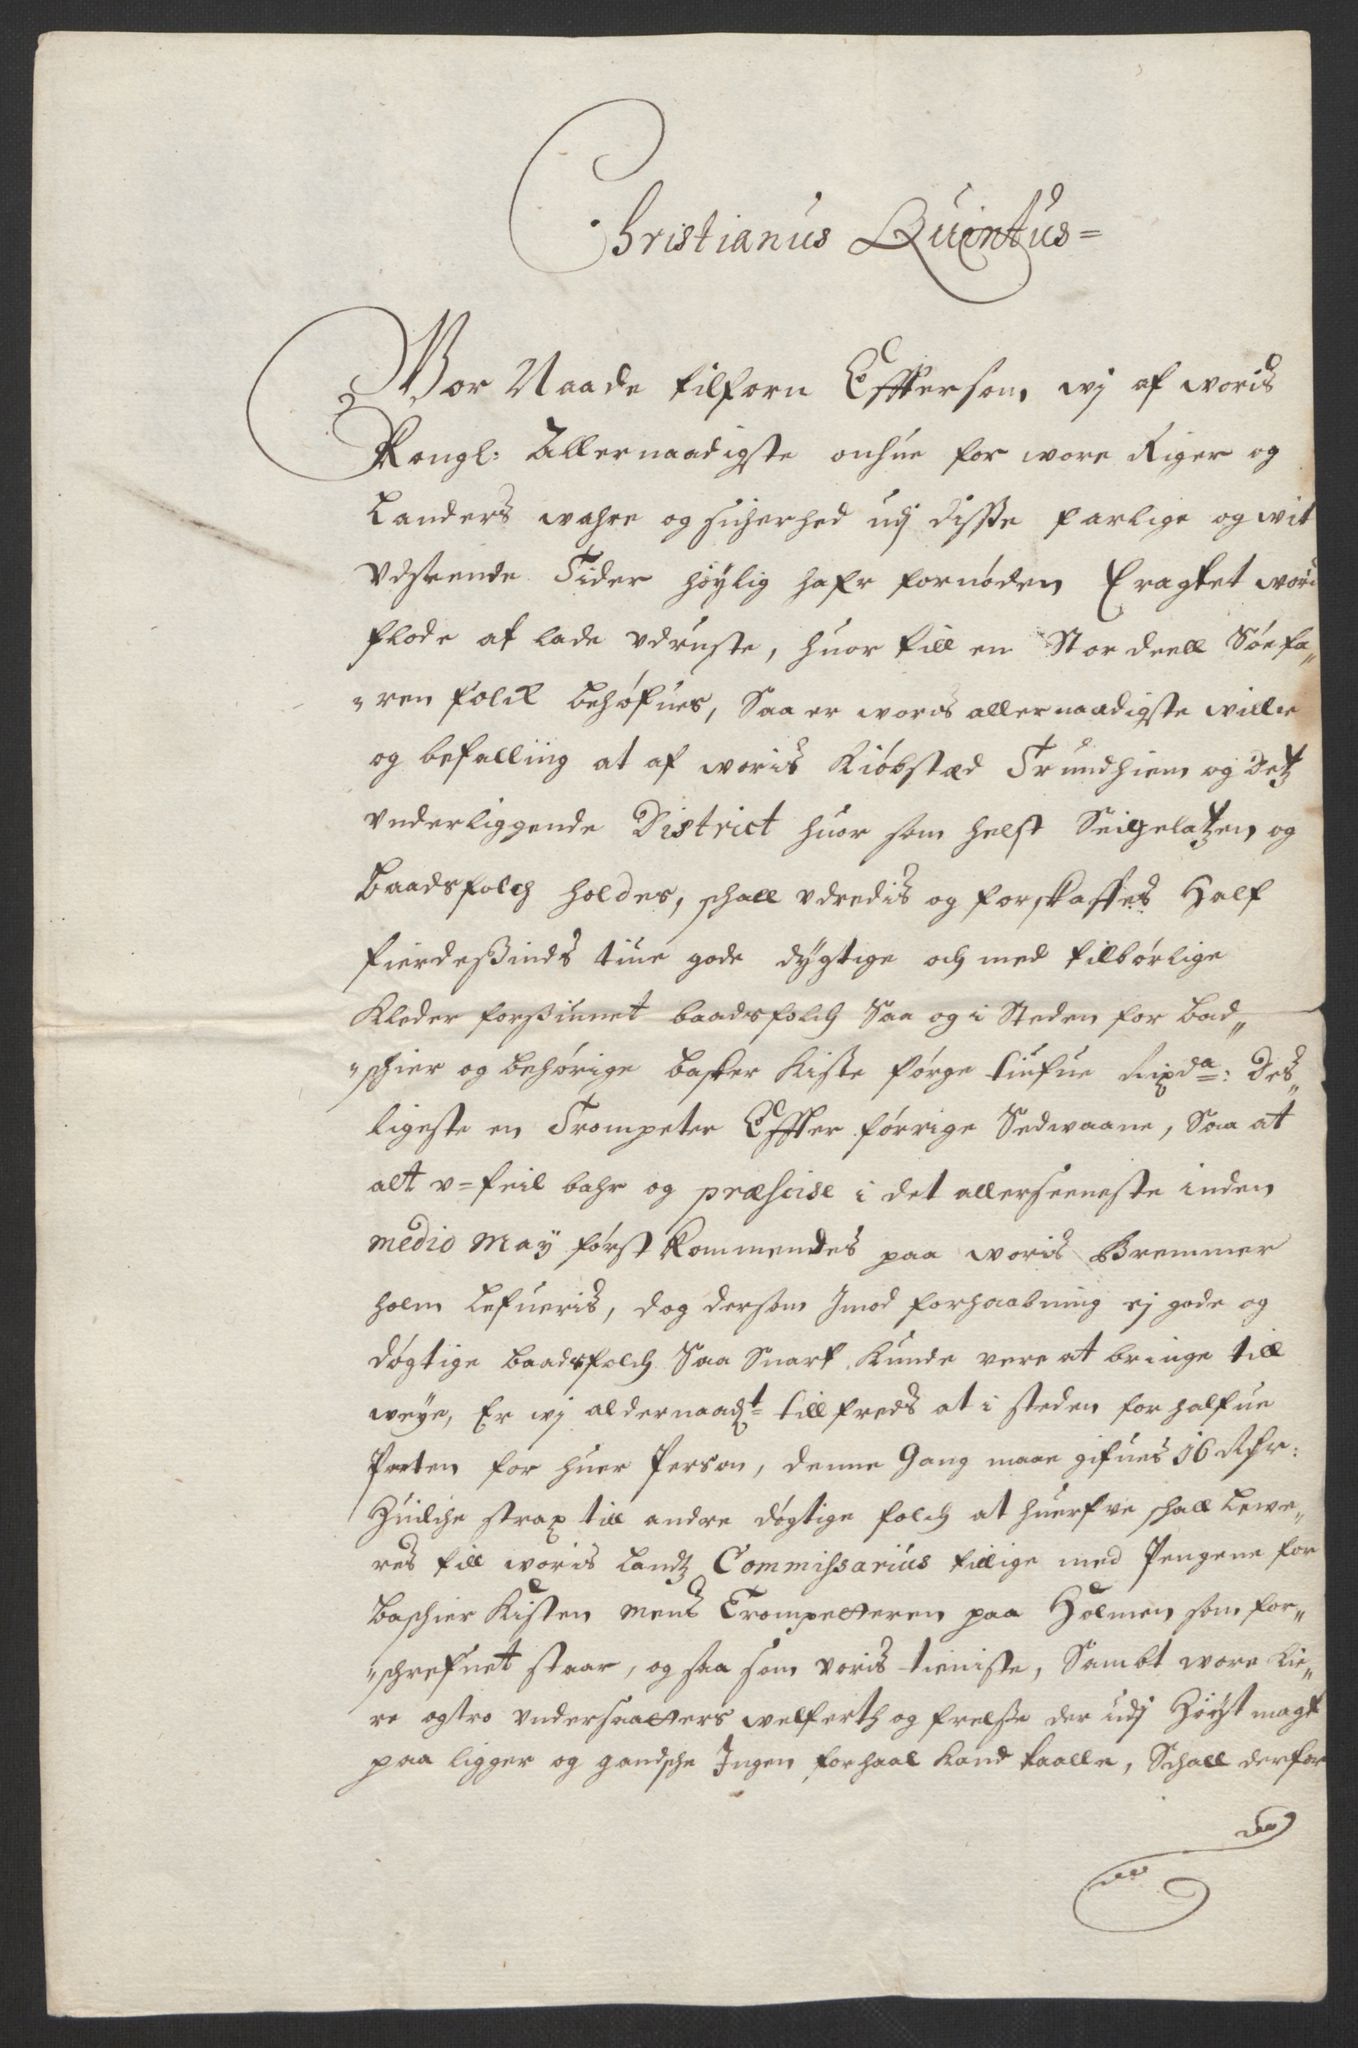 Christianus Quintus=
Vor Naade tilforn Effttersom wj af woris
Kongl: Allernaadigste onhue for wore Riger og
Landers wahre og sicherhed udj disse farlige og wit
vdseende Tider höylig hafr fornöden Eragtet woris
flode at lade vdruste, huor till en Stor deell Söefa„
„ren folck behöfues, Saa er woris allernaadigste willie
og befalling at af woris Kiöbstæd Trundhiem og Detz
vnderliggende District huor som helst Seigelatzen og
Baadsfolch holdes, schall vdredis og forskaffes Half
fierdesinds tiue gode dygtige och med tilbörlige
Kleder forsiunet baadsfolch Saa og i Steden for Bad„
„schier og behörige basker Kisteförge tiufue Rixda: Des„
ligeste en Trompeter Effter förrige Sedwaane, Saa at
alt v=feilbahr og præscise i det allerseeneste inden
medio May först kommendes paa woris Bremmer
holm Lefueris, dog dersom Imod forhaabning ej gode og
dögtige baadsfolch Saa Snart Kunde vere at bringe till
weye, Er wj aldernaadt tillfreds at i steden for halfue
Parten for huer Person, denne Gang maae gifues 16 Rdr:
Huilche strax till andre dögtige folch at huerfve schall Lewe„
res till woris Landtz Commissarius tillige med Pengene for
baschier Kisten mens Trompetteren paa Holmen som for„
„schrefuet staar, og saa som voris tieniste, Sambt wore Kie„
re og tro vndersaatters welferth og frelse der udj Höyst magt
paa ligger og gandsche Ingen forhaal Kand taalle, Schall derfor